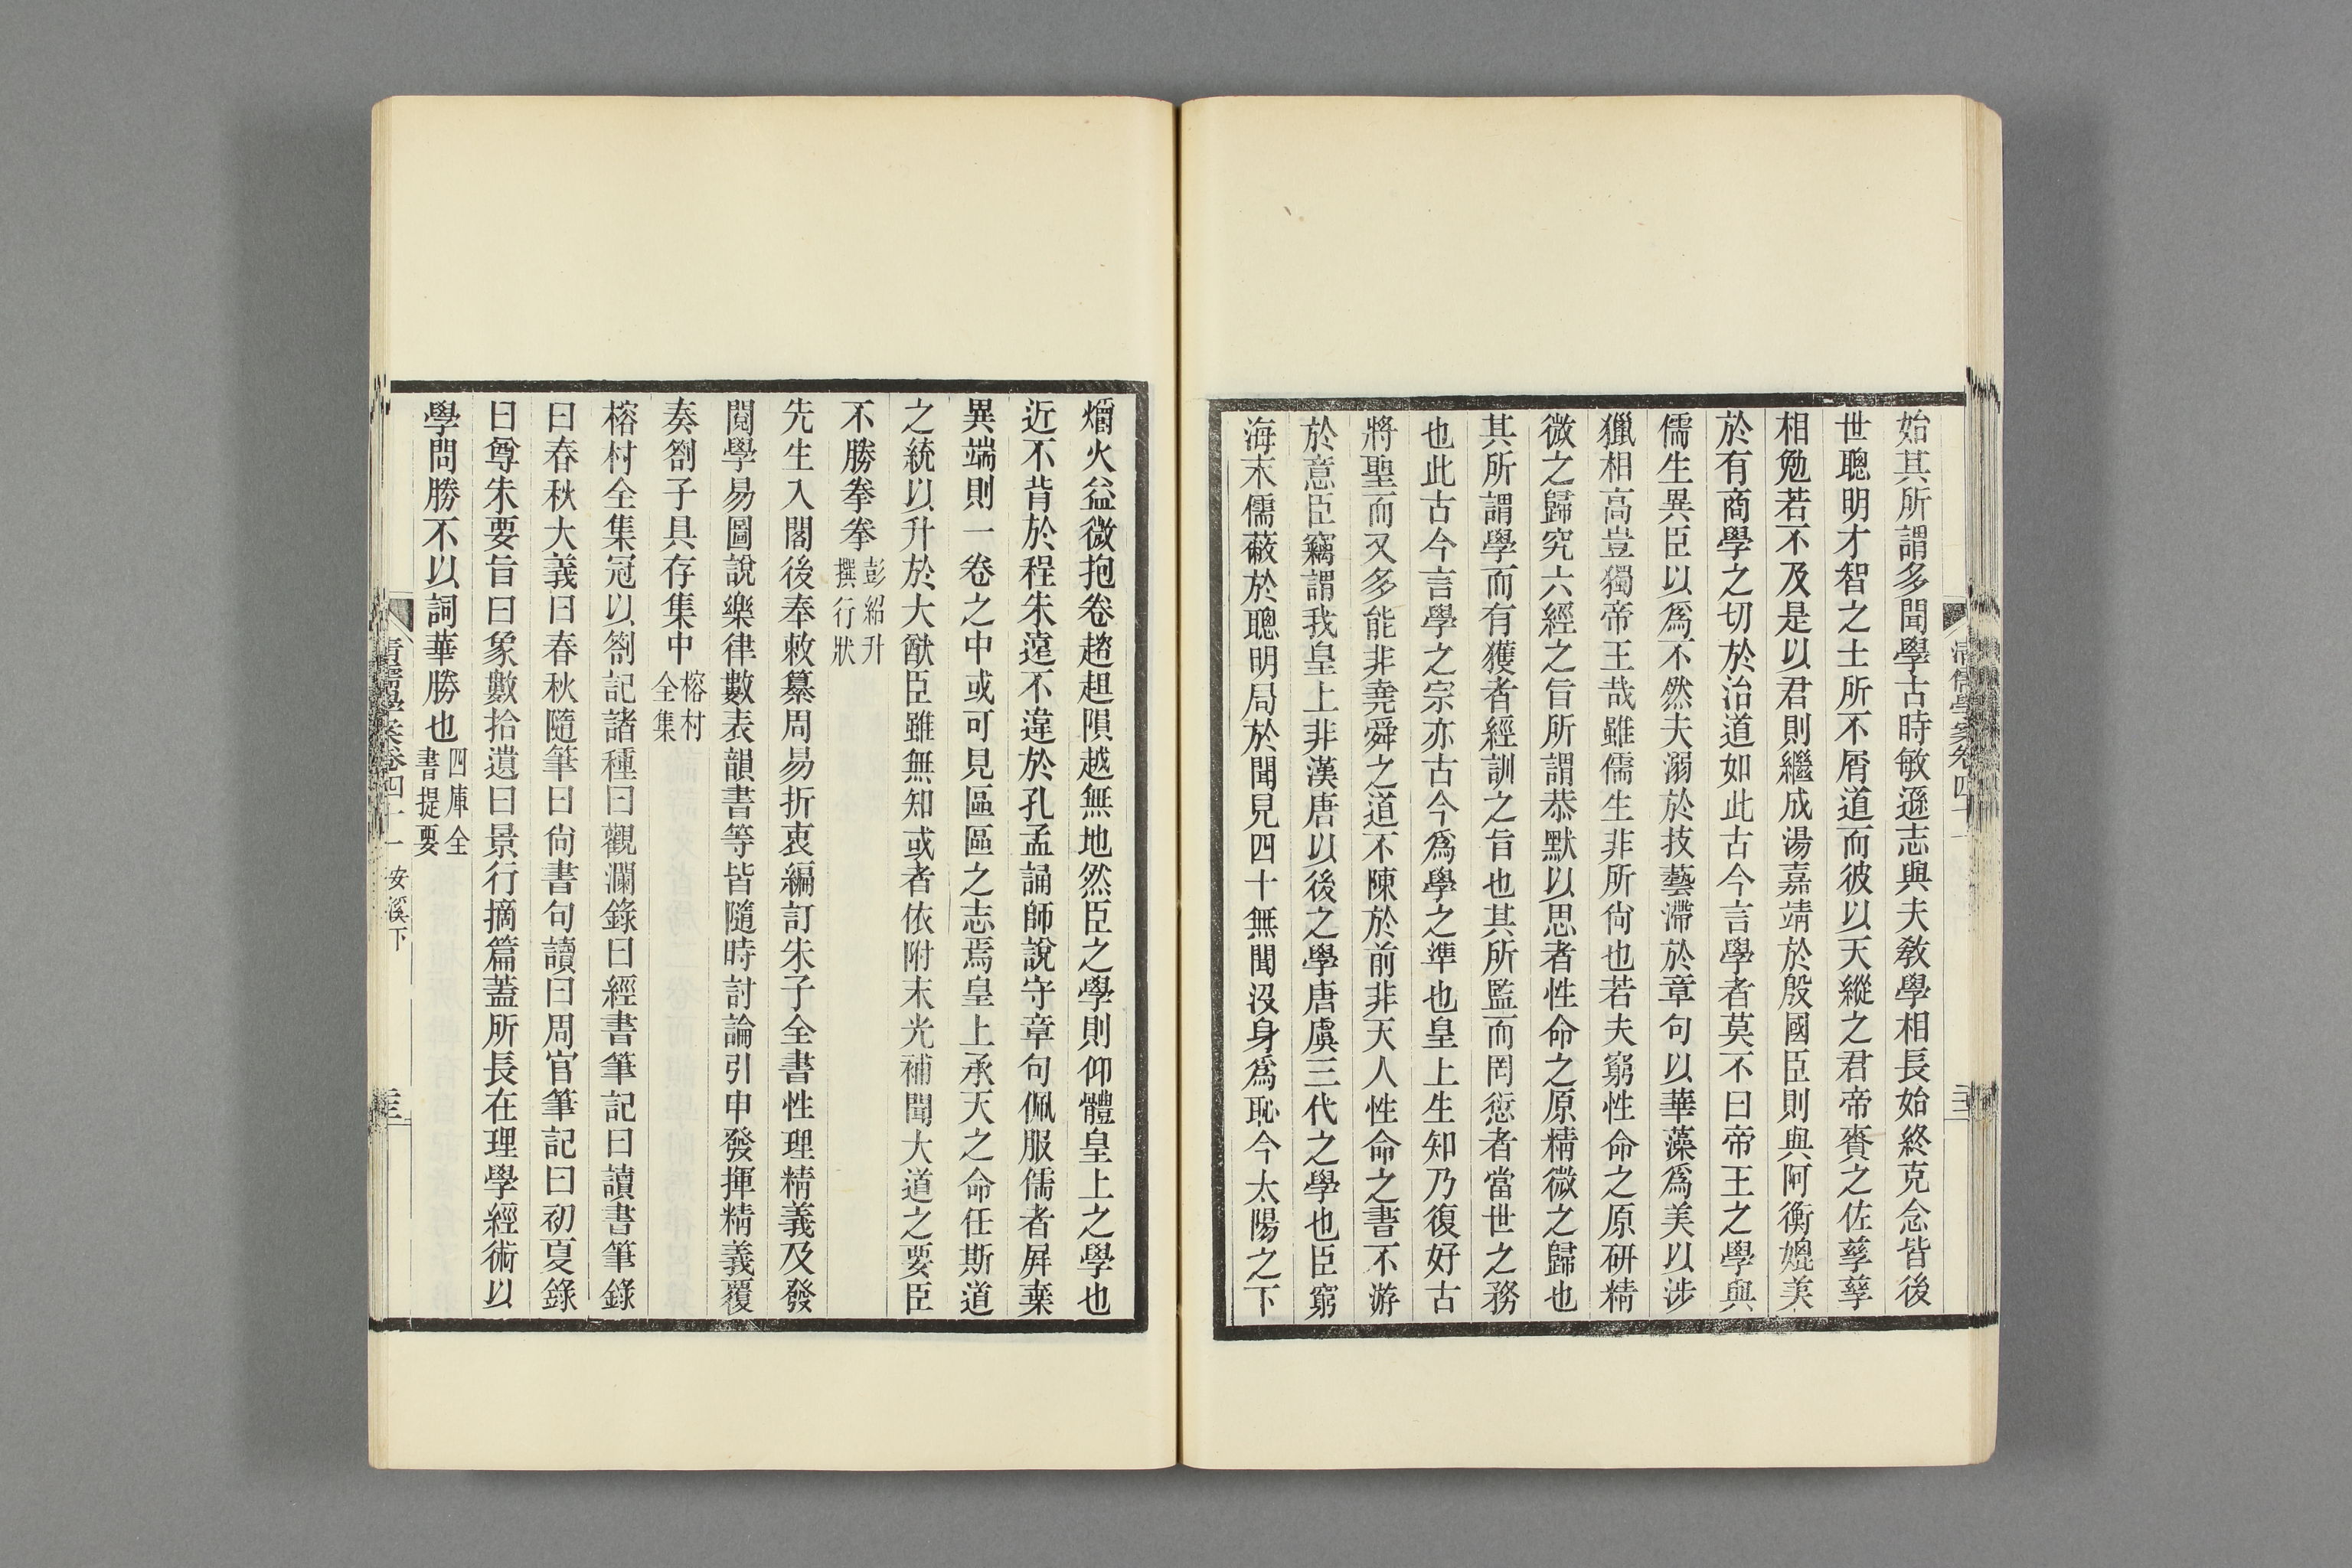 始其所謂多聞學古時敏遜志與夫敎學相長始終克念皆後
世聰明才智之士所不屑道而彼以天縱之君帝賚之佐孳孳
相勉若不及是以君則繼成湯嘉靖於殷國臣則與阿衡媲美
於有商學之切於治道如此古今言學者莫不曰帝王之學與
儒生異臣以爲不然夫溺於技藝滯於章句以華藻爲美以涉
獵相高豈獨帝王哉雖儒生非所尙也若夫窮性命之原硏精
微之歸究六經之旨所謂恭默以思者性命之原精微之歸也
其所謂學而有獲者經訓之旨也其所監而罔愆者當世之務
也此古今言學之宗亦古今爲學之準也皇上生知乃復好古
將聖而又多能非堯舜之道不陳於前非天人性命之書不游
於意臣竊謂我皇上非漢唐以後之學唐虞三代之學也臣窮
海末儒蔽於聰明局於聞見四十無聞沒身爲恥今太陽之下
爝火益微抱卷趦趄隕越無地然臣之學則仰體皇上之學也
近不背於程朱遠不違於孔孟誦師說守章句佩服儒者屛棄
異端則一卷之中或可見區區之志焉皇上承天之命任斯道
之統以升於大猷臣雖無知或者依附末光補聞大道之要臣
不勝拳拳彭紹升撰行狀
先生入閣後奉敕纂周易折衷編訂朱子全書性理精義及發
閱學易圖說樂律數表韻書等皆隨時討論引申發揮精義覆
奏劄子具存集中榕村全集
榕村全集冠以劄記諸種曰觀瀾錄曰經書筆記曰讀書筆錄
曰春秋大義曰春秋隨筆曰尙書句讀曰周官筆記曰初夏錄
曰尊朱要旨曰象數拾遺曰景行摘篇蓋所長在理學經術以
學問勝不以詞華勝也四庫全書提要
清儒學案卷四十一 安溪下